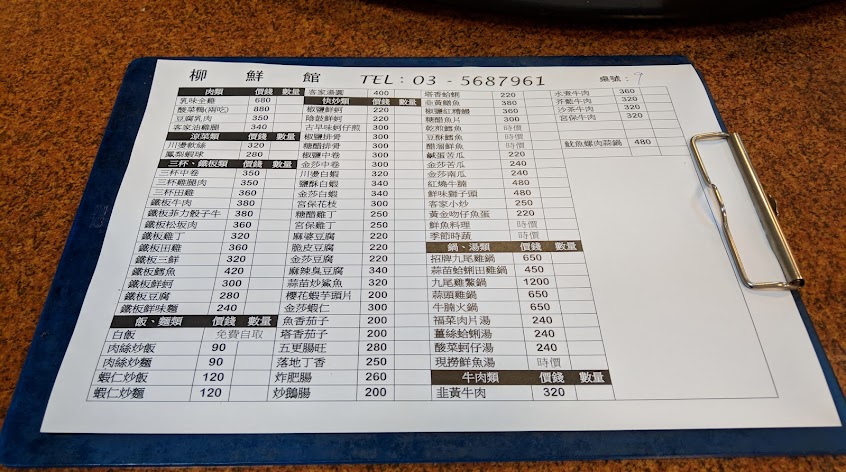 柳 鮮 館 TEL：03 - 5687961 桌號：9
肉類 價錢 數量
乳味全雞 680
酸菜鴨(兩吃) 880
豆腐乳肉 350
客家油雞腿 340
涼菜類 價錢 數量
川燙軟絲 320
鳳梨蝦球 280
三杯、鐵板類 價錢 數量
三杯中卷 350
三杯雞腿肉 350
三杯田雞 360
鐵板牛肉 380
鐵板菲力骰子牛 380
鐵板松坂肉 360
鐵板雞丁 320
鐵板田雞 360
鐵板三鮮 320
鐵板鱈魚 420
鐵板鮮蚵 300
鐵板豆腐 280
鐵板鮮味麵 240
飯、麵類 價錢 數量
白飯 免費自取
肉絲炒飯 90
肉絲炒麵 90
蝦仁炒飯 120
蝦仁炒麵 120
客家湯圓 400
快炒類 價錢 數量
椒鹽鮮蚵 220
蔭鼓鮮蚵 220
古早味蚵仔煎 300
椒鹽排骨 300
糖醋排骨 300
椒鹽中卷 300
金莎中卷 300
川燙白蝦 320
鹽酥白蝦 340
金莎白蝦 340
宮保花枝 300
糖醋雞丁 250
宮保雞丁 250
麻婆豆腐 220
脆皮豆腐 220
金莎豆腐 220
麻辣臭豆腐 340
蒜苗炒鯊魚 320
櫻花蝦芋頭片 200
金莎蝦仁 300
魚香茄子 200
塔香茄子 200
五更腸旺 280
落地丁香 250
炸肥腸 260
炒鵝腸 200
塔香蛤蜊 220
韭黃鱔魚 380
椒鹽紅糟鰻 360
糖醋魚片 300
乾煎鱈魚 時價
豆酥鱈魚 時價
醋溜鮮魚 時價
鹹蛋苦瓜 220
金莎苦瓜 240
金莎南瓜 240
紅燒牛腩 480
鮮味獅子頭 480
客家小炒 250
黃金吻仔魚蛋 220
鮮魚料理 時價
季節時蔬 時價
鍋、湯類 價錢 數量
招牌九尾雞鍋 650
蒜苗蛤蜊田雞鍋 450
九尾雞鱉鍋 1200
蒜頭雞鍋 650
牛腩火鍋 650
福菜肉片湯 240
薑絲蛤蜊湯 240
酸菜蚵仔湯 240
現撈鮮魚湯 時價
牛肉類 價錢 數量
韭黃牛肉 320
水煮牛肉 360
芥藍牛肉 320
沙茶牛肉 320
宮保牛肉 320
魷魚螺肉蒜鍋 480